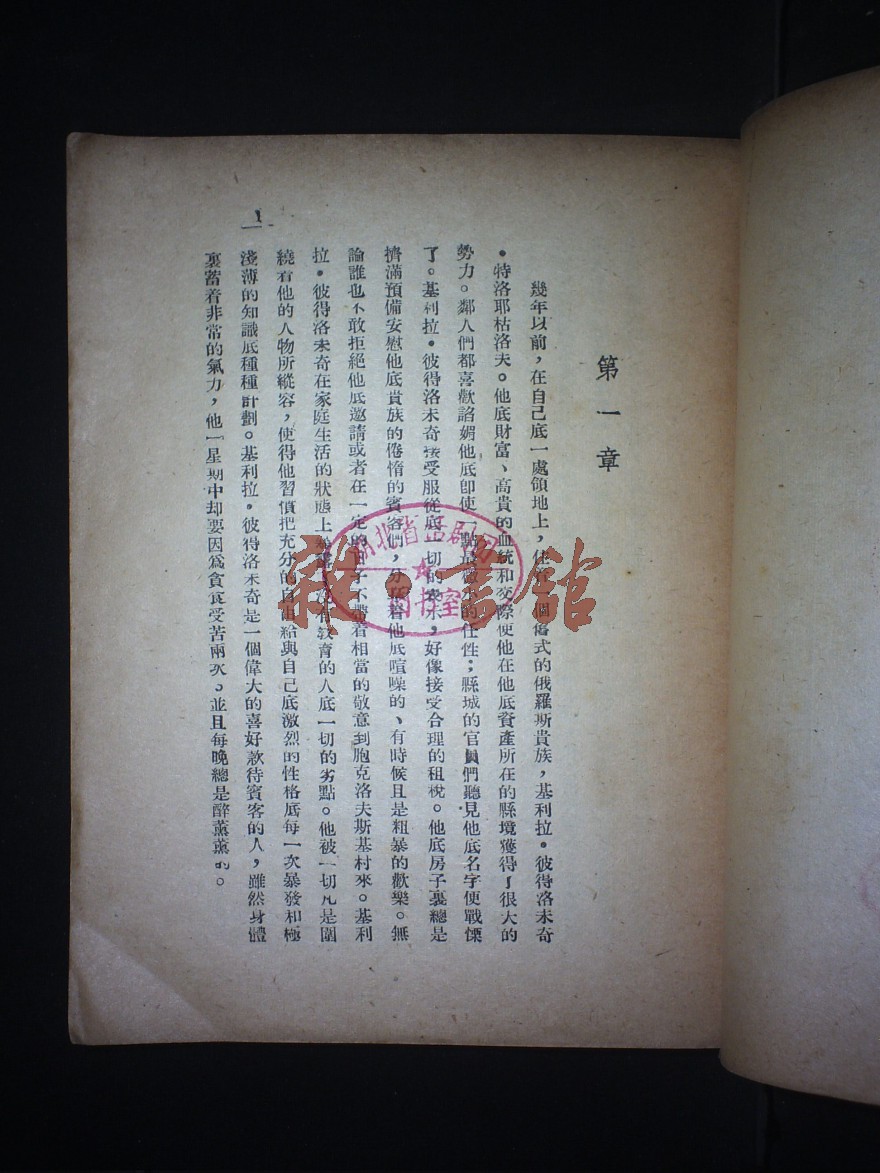 第一章
幾年以前，在自己底一處領地上，住 個舊式的俄羅斯貴族，基利拉•彼得洛未奇
•特洛耶枯洛夫。他底財富、高貴的血統和交際使他在他底資產所在的縣境獲得了很大的
勢力。鄰人們都喜歡諂媚他底卽使一點 的任性；縣城的官員們聽見他底名字便戰慄
了。基利拉•彼得洛未奇接受服從底一切的表示，好像接受合理的租稅。他底房子裏總是
擠滿預備安慰他底貴族的倦惰的賓客們，分 着他底喧噪的、有時候且是粗暴的歡樂。無
論誰也不敢拒絕他底邀請或者在一定的日子不帶着相當的敬意到胞克洛夫斯基村來。基利
拉•彼得洛未奇在家庭生活的狀態上 敎育的人底一切的劣點。他被一切凡是圍
繞着他的人物所縱容，使得他習慣把充分的自由給與自己底激烈的性格底每一次暴發和極
淺薄的知識底種種計劃。基利拉•彼得洛未奇是一個偉大的喜好款待賓客的人，雖然身體
裏蓄着非常的氣力，他一星期中却要因爲貪食受苦兩次。並且每晚總是醉薰薰的。
1
湖北省話劇
書館